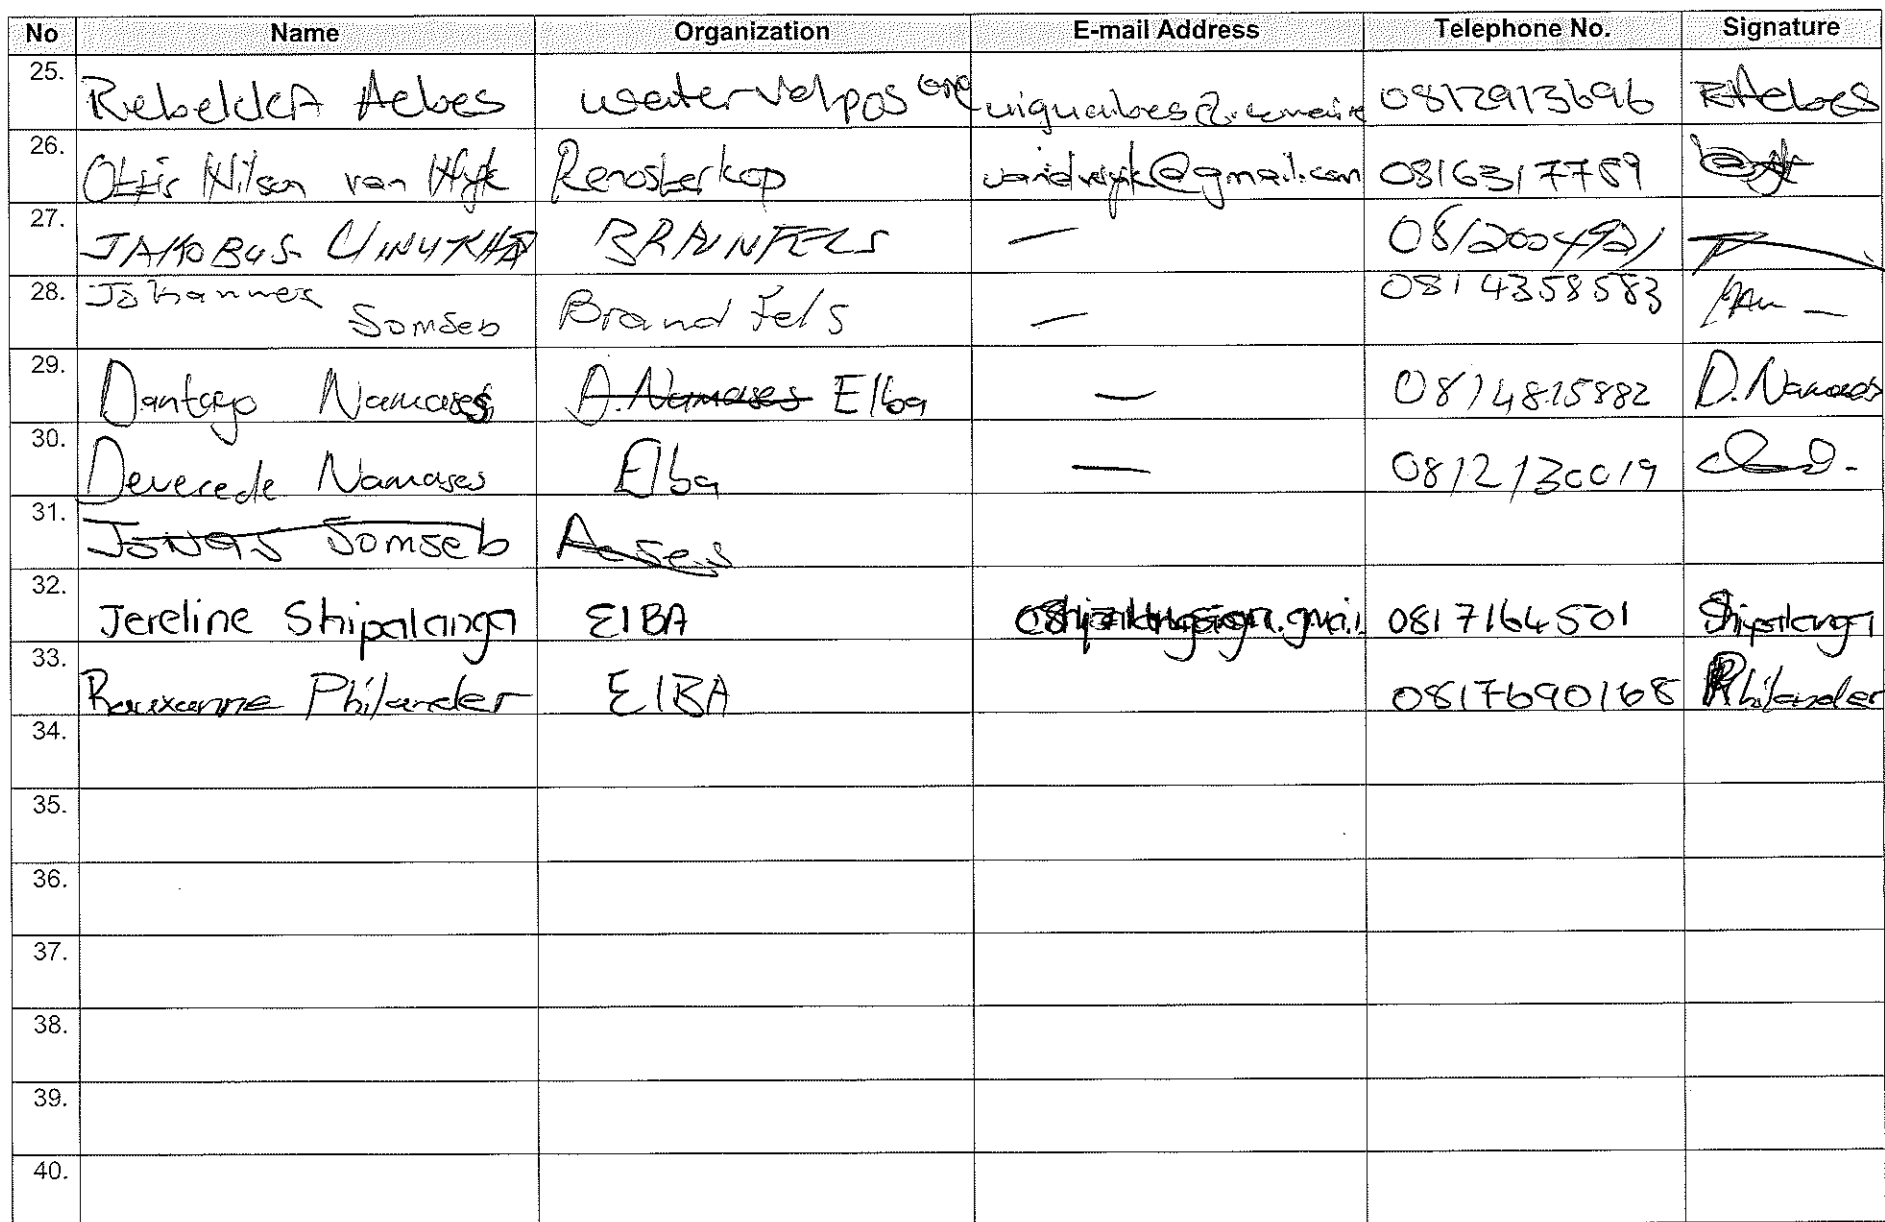 No Name Organization E-mail Address Telephone No. Signature
25. RebekkA Aebes watervalpos 0812913696 RAebes
26. Ottis Wilson van Wyk Renosterkop @gmail.com 0816317759
27. JAKOBUS BRAINFELS — 0812004921
28. Johannes Somseb Brand fels — 0814358583
29. Dantago Namases A. Namases Elba — 0814815882 D. Namases
30. Deverede Namases Elba — 0812130019
31. Jonas Somseb
32. Jereline Shipalanga ElBA 0817164501 Shipalanga
33. Rauxanne Philander ElBA 0817690168 Philander
34.
35.
36.
37.
38.
39.
40.